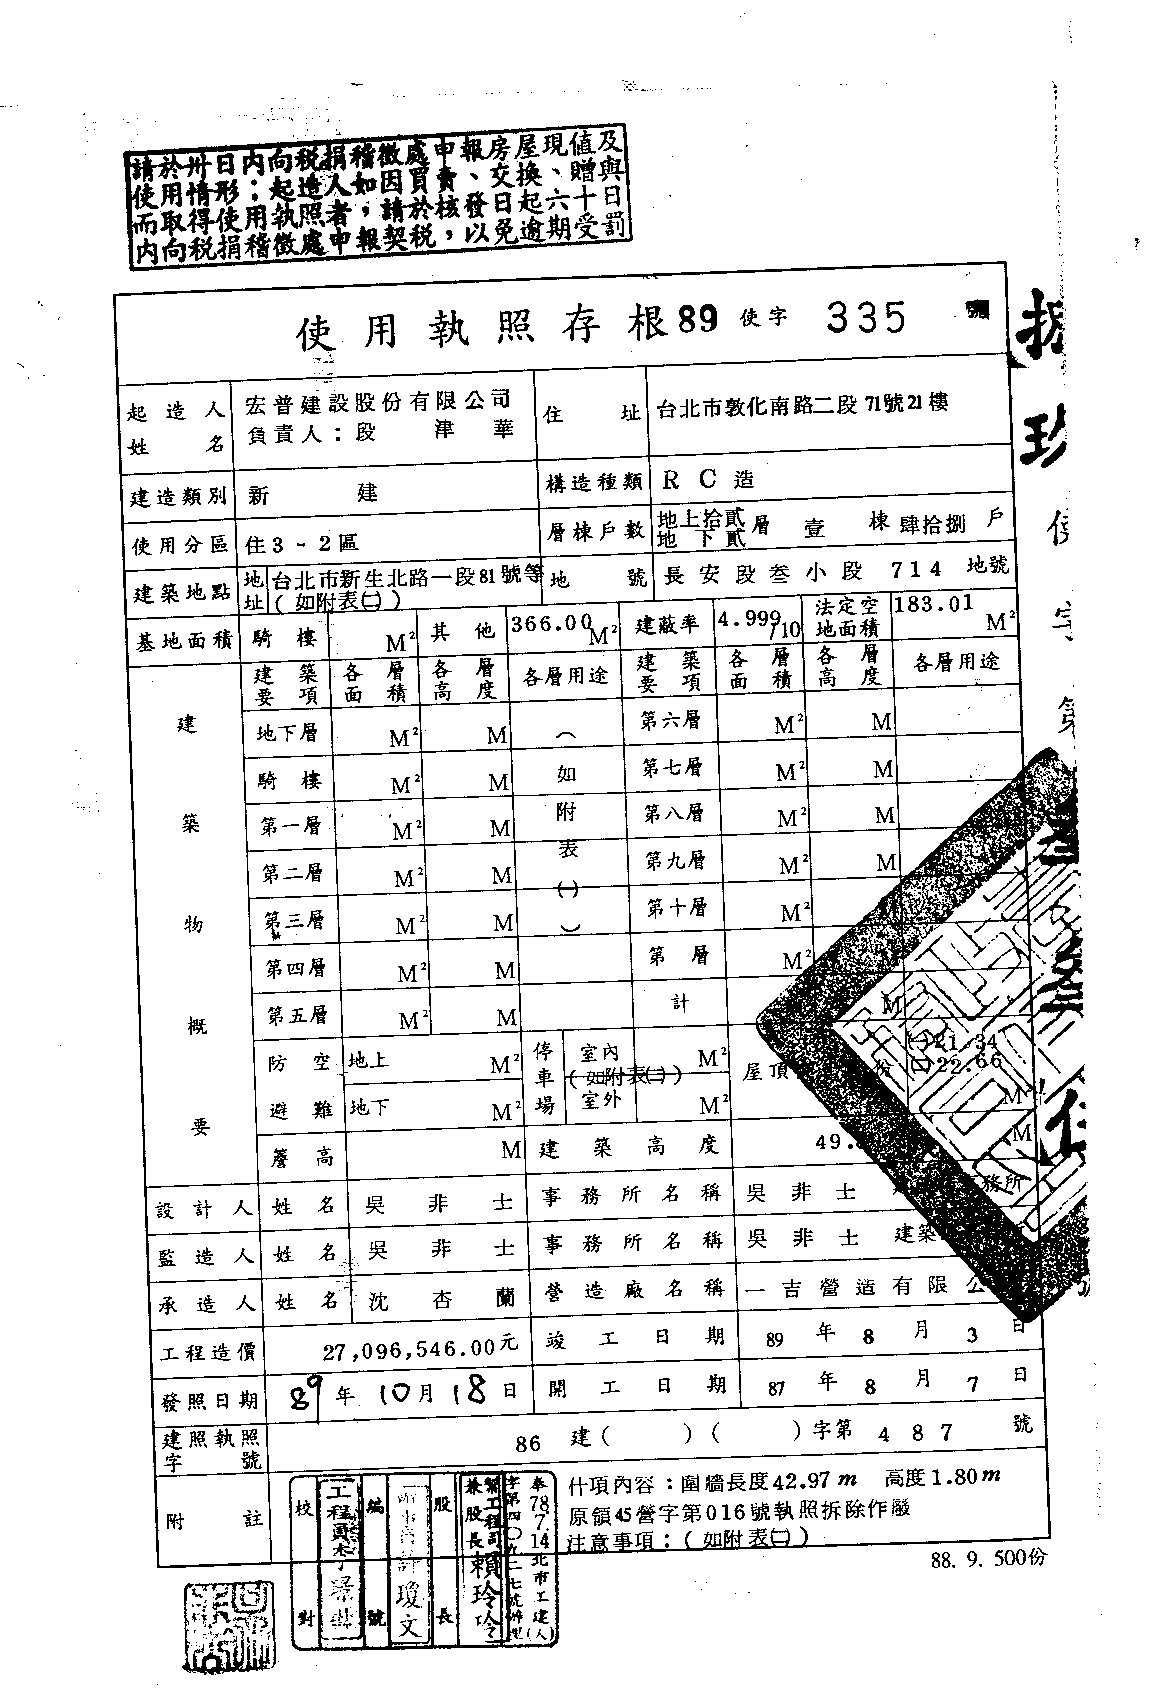 請於卅日內向稅捐稽徵處申報房屋現值及
使用情形；起造人如因買賣、交換、贈與
而取得使用執照者，請於核發日起六十日
內向稅捐稽徵處申報契稅，以免逾期受罰
使用執照存根 89 使字 335 號
起造人姓名 宏普建設股份有限公司 住址 台北市敦化南路二段71號21樓
負責人：段津華
建造類別 新建 構造種類 RC造
使用分區 住3-2區 層棟戶數 地上拾貳層 地下貳層 壹棟 肆拾捌戶
建築地點 地址 台北市新生北路一段81號等 地號 長安段叁小段 714 地號
(如附表㈡)
基地面積 騎樓 M² 其他 366.00 M² 建蔽率 4.999/10 法定空地面積 183.01 M²
建築物概要
建築要項 各層面積 各層高度 各層用途 建築要項 各層面積 各層高度 各層用途
地下層 M² M (如附表㈠) 第六層 M² M
騎樓 M² M 第七層 M² M
第一層 M² M 第八層 M² M
第二層 M² M 第九層 M² M
第三層 M² M 第十層 M²
第四層 M² M 第層 M² M
第五層 M² M 計 M
防空避難 地上 M² 停車場 室內 M² 屋頂 份 ㈠21.34
(如附表㈡) ㈡22.66
地下 M² 室外 M² M²
簷高 M 建築高度 49. M
設計人 姓名 吳非士 事務所名稱 吳非士 務所
監造人 姓名 吳非士 事務所名稱 吳非士 建築
承造人 姓名 沈杏蘭 營造廠名稱 一吉營造有限公
工程造價 27,096,546.00元 竣工日期 89年8月3日
發照日期 89年10月18日 開工日期 87年8月7日
建照執照字號 86 建( )( )字第 487 號
附註 什項內容：圍牆長度42.97m 高度1.80m
原領45營字第016號執照拆除作廢
注意事項：(如附表㈡)
校對
編號 許瓊文
股長
兼股長 賴玲玲
88. 9. 500份
捌
玖
使
字
第